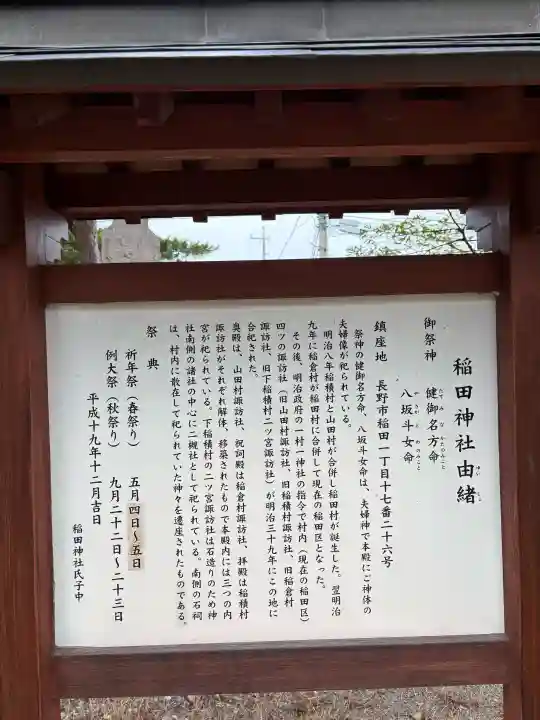 稲田神社由緒
ゆいしょ
御祭神　健御名方命
たてみなかたのみこと
八坂斗女命
やさかとめのみこと
鎮座地　長野市稲田一丁目十七番二十六号
祭神の健御名方命、八坂斗女命は、夫婦神で本殿にご神体の
夫婦像が祀られている。
明治八年稲積村と山田村が合併し稲田村が誕生した。翌明治
九年に稲倉村が稲田村に合併して現在の稲田区となった。
その後、明治政府の一村一神社の指令で村内（現在の稲田区）
四ツの諏訪社（旧山田村諏訪社、旧稲積村諏訪社、旧稲倉村
諏訪社、旧下稲積村二ツ宮諏訪社）が明治三十九年にこの地に
合祀された。
奥殿は、山田村諏訪社、祝詞殿は稲倉村諏訪社、拝殿は稲積村
諏訪社がそれぞれ解体、移築されたもので本殿内には三つの内
宮が祀られている。下稲積村の二ツ宮諏訪社は石造りのため神
社南側の諸社の中心に二櫬社として祀られている。南側の石祠
は、村内に散在して祀られていた神々を遷座されたものである。
祭典
祈年祭（春祭り）　五月四日～五日
例大祭（秋祭り）　九月二十二日～二十三日
平成十九年十二月吉日
稲田神社氏子中